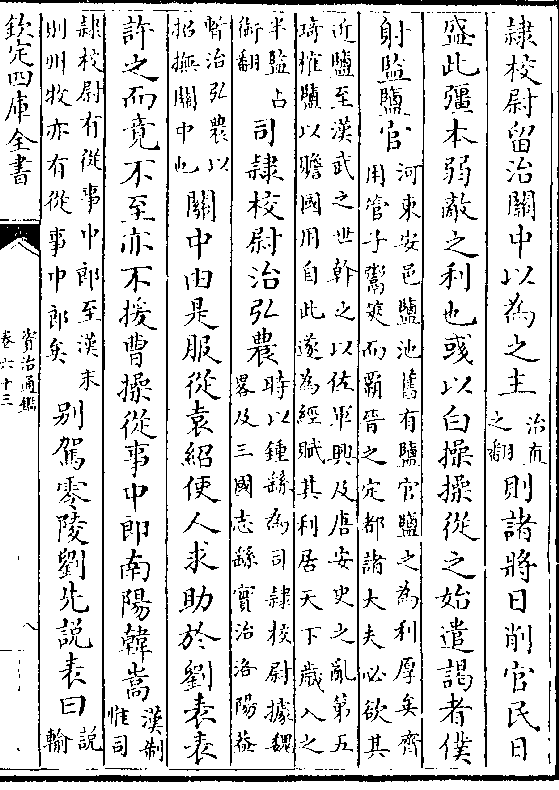 隸校尉留治關中以為之主治直之翻則諸將日削官民日
盛此彊本弱敵之利也彧以白操操從之始遣謁者僕
射監鹽官河東安邑鹽池舊有鹽官鹽之為利厚矣齊用管子鬻筴而霸晉之定都諸大夫必欲其
近鹽至漢武之世幹之以佐軍興及唐安史之亂第五琦榷鹽以贍國用自此遂為經賦其利居天下歲入之
半監古銜翻司隸校尉治弘農時以鍾繇為司隸校尉據魏畧及三國志繇實治洛陽葢
暫治弘農以招撫關中也關中由是服從袁紹使人求助於劉表表
許之而竟不至亦不援曹操從事中郎南陽韓嵩漢制惟司
隸校尉有從事中郎至漢末則州牧亦有從事中郎矣别駕零陵劉先説表曰説輸
欽定四庫全書
資治通鑑
卷六十三
八